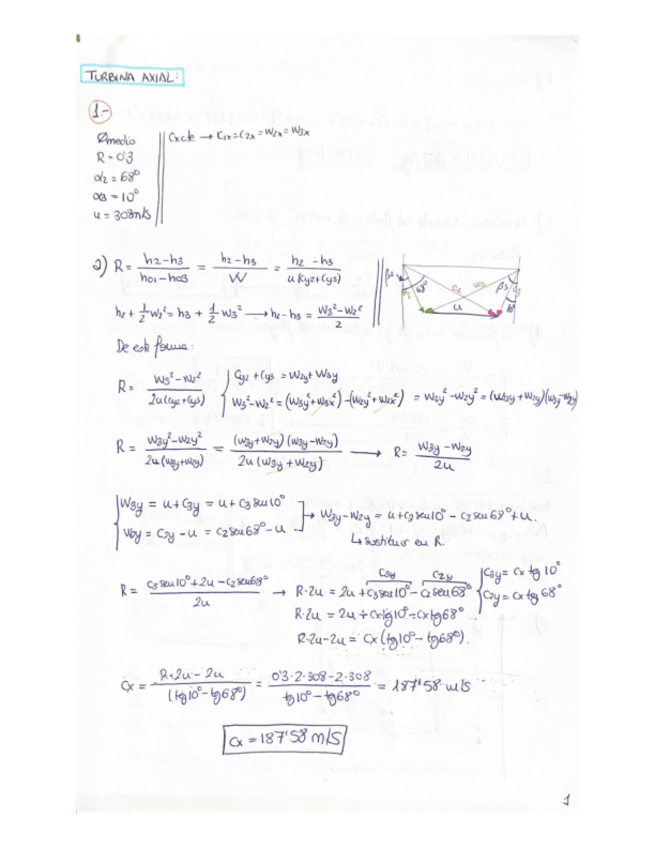 TURBINA AXIAL:
1.-
Ømedio
R = 0'3
α2 = 68°
α3 = 10°
u = 308 m/s
Cx cte → C1x = C2x = W2x = W3x
a) R = (h2 - h3)/(h01 - h03) = (h2 - h3)/W = (h2 - h3)/(u (Cy2 + Cy3))
h2 + 1/2 W2² = h3 + 1/2 W3² → h2 - h3 = (W3² - W2²)/2
De esta forma:
R = (W3² - W2²)/(2u (Cy2 + Cy3))
Cy2 + Cy3 = W2y + W3y
W3² - W2² = (W3y² + W3x²) - (W2y² + W2x²) = W3y² - W2y² = (W3y + W2y)(W3y - W2y)
R = (W3y² - W2y²)/(2u (W3y + W2y)) = (W3y + W2y)(W3y - W2y)/(2u (W3y + W2y)) → R = (W3y - W2y)/(2u)
W3y = u + C3y = u + C3 sen 10°
W2y = C2y - u = C2 sen 68° - u
→ W3y - W2y = u + C3 sen 10° - C2 sen 68° + u.
↳ sustituir en R.
R = (C3 sen 10° + 2u - C2 sen 68°)/(2u) → R·2u = 2u + C3 sen 10° - C2 sen 68°
C3y C2y
C3y = Cx tg 10°
C2y = Cx tg 68°
R·2u = 2u + Cx tg 10° - Cx tg 68°
R·2u - 2u = Cx (tg 10° - tg 68°).
Cx = (R·2u - 2u)/(tg 10° - tg 68°) = (0'3·2·308 - 2·308)/(tg 10° - tg 68°) = 187'58 m/s
Cx = 187'58 m/s
1